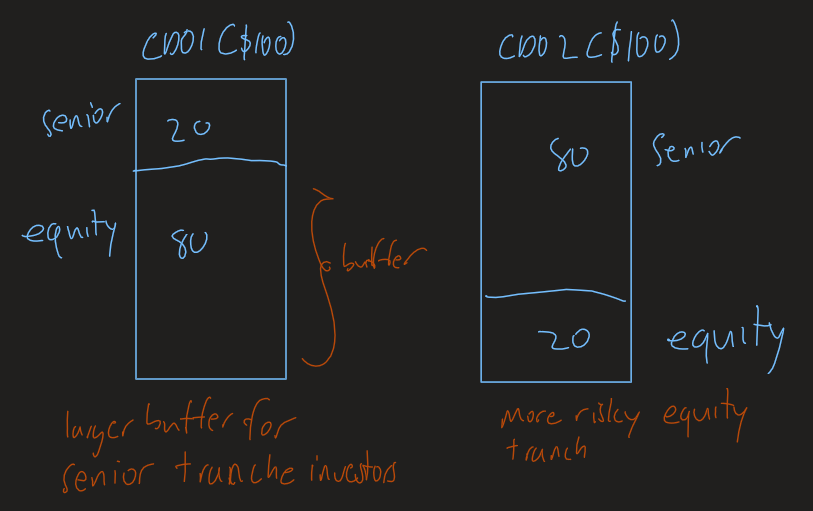 CDO1 ($100)
senior
20
equity
80
buffer
larger buffer for
senior tranche investors
CDO 2 ($100)
80
senior
20
equity
more risky equity
tranch